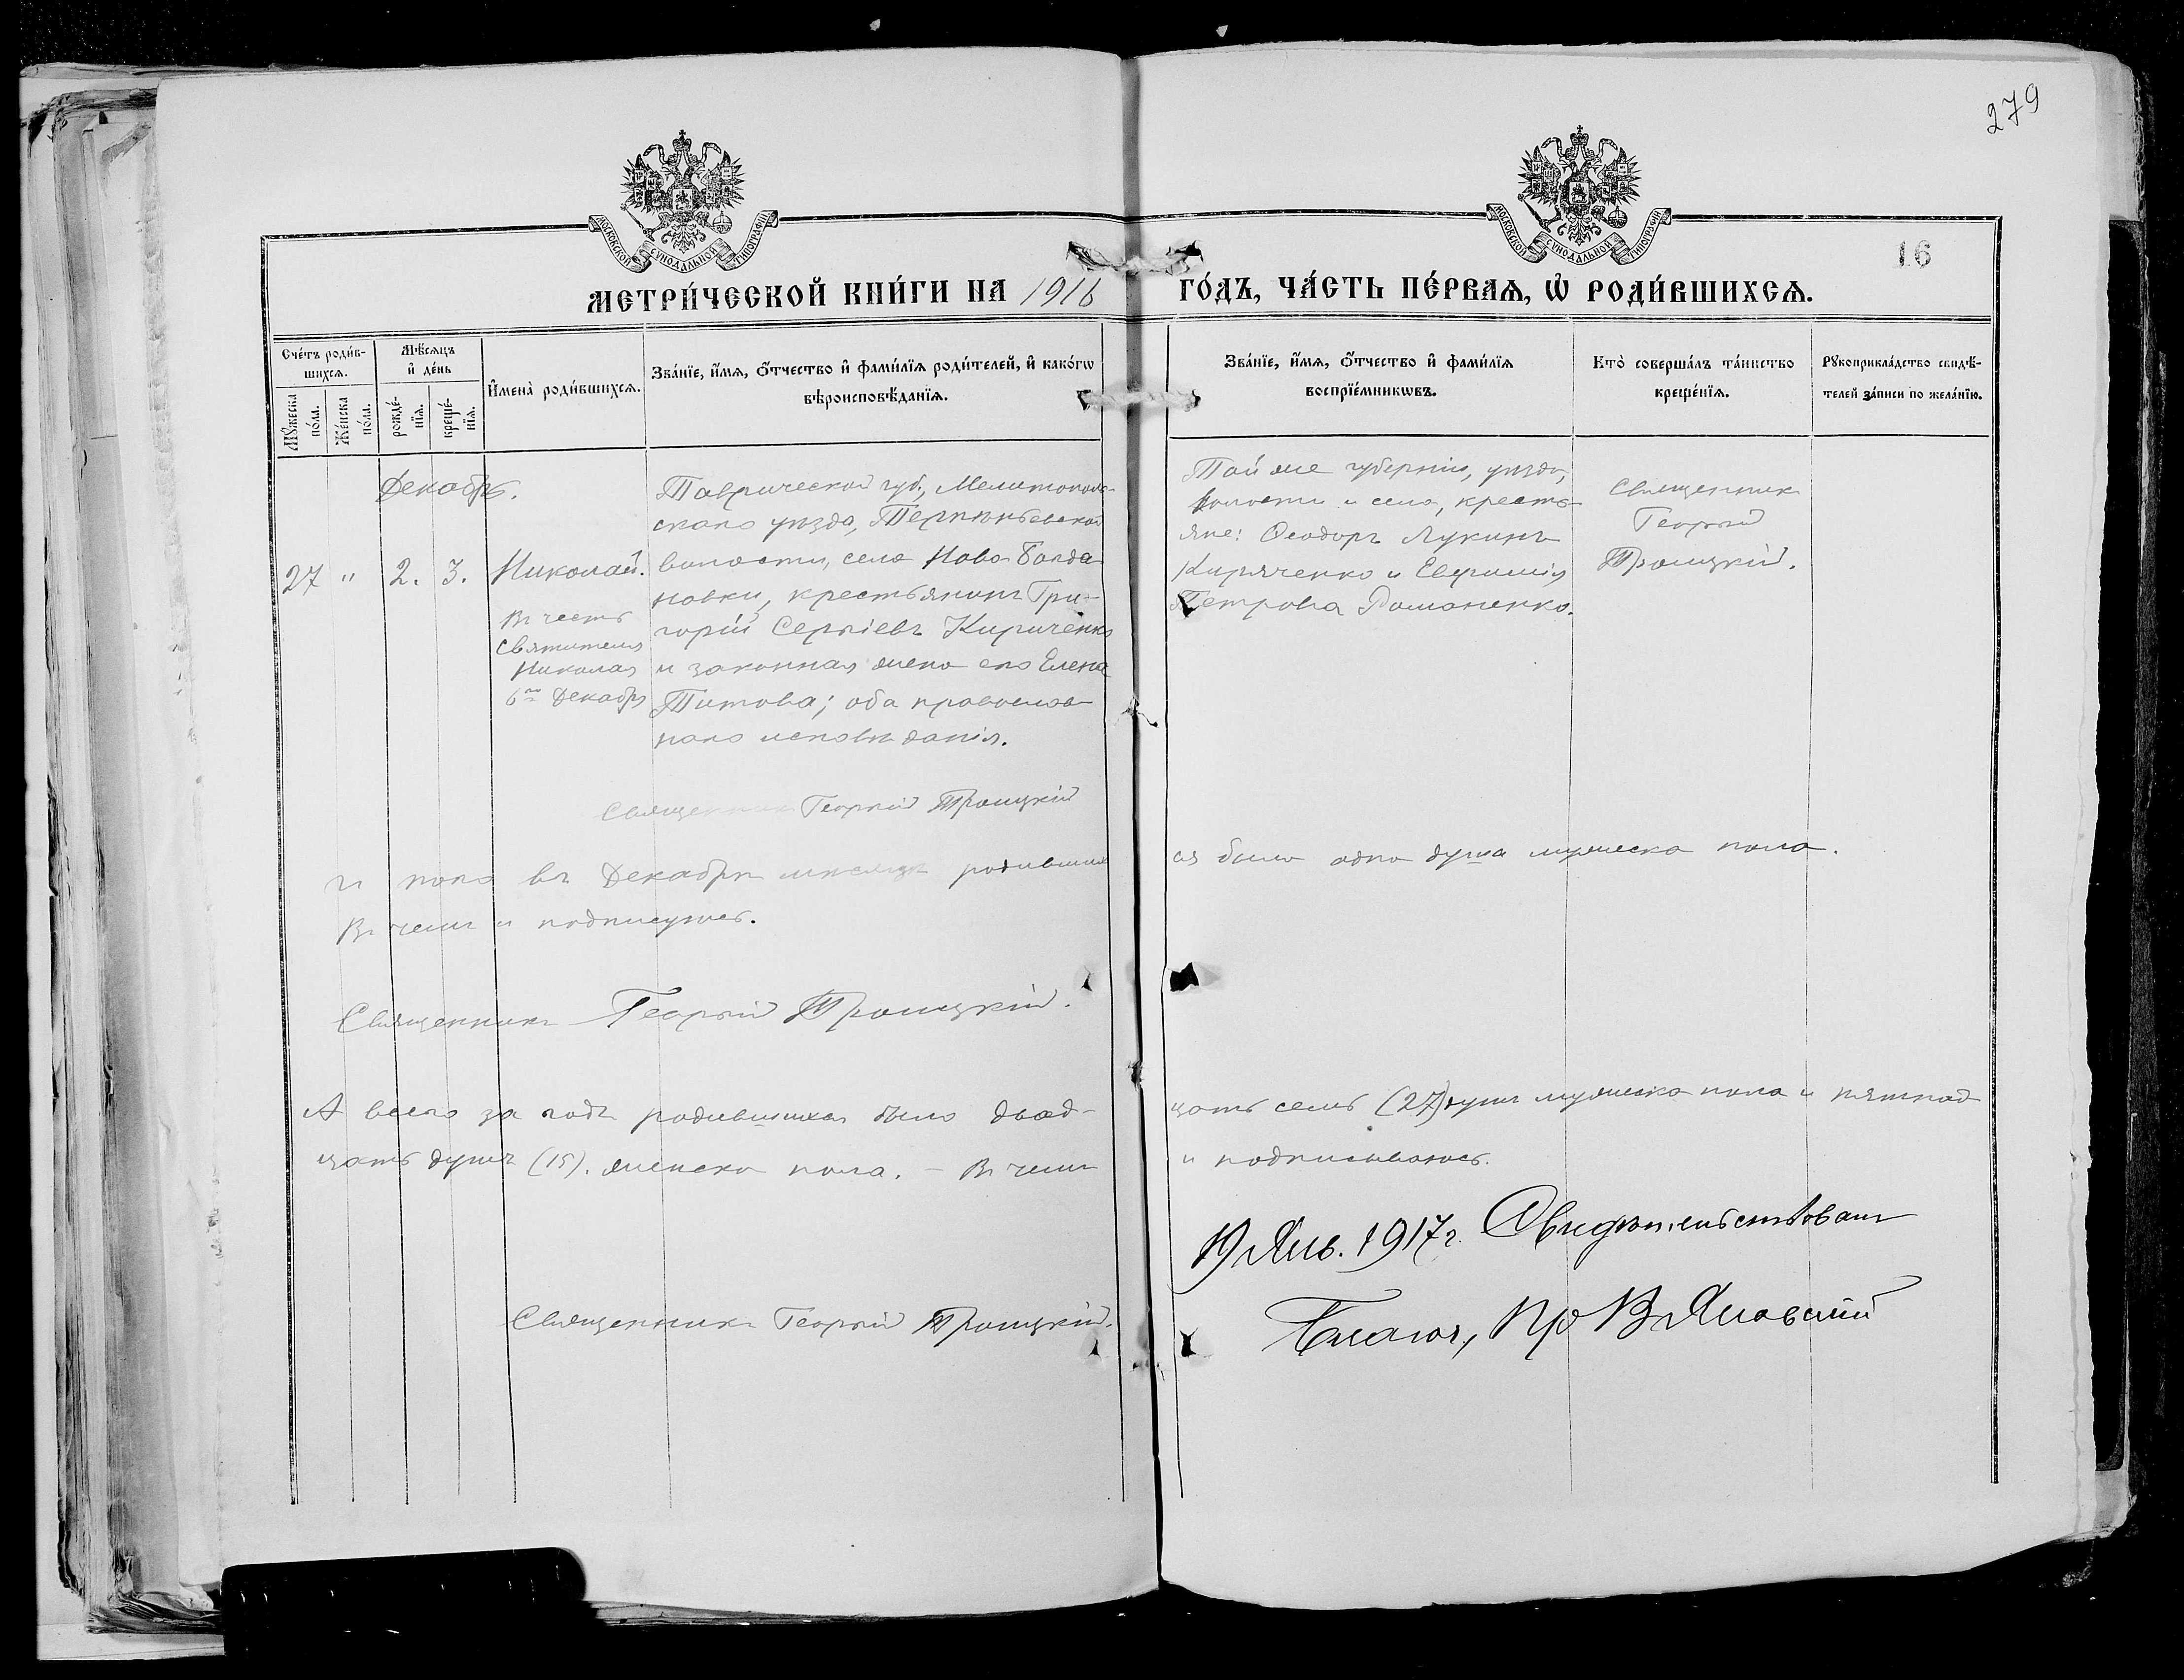 279
МОСКОВСКОЙ СѴНОДАЛЬНОЙ ТИПОГРАФІИ
МОСКОВСКОЙ СѴНОДАЛЬНОЙ ТИПОГРАФІИ
16
МЕТРИ́ЧЕСКОЙ КНИ́ГИ НА 1916 ГО́ДЪ, ЧА́СТЬ ПЕ́РВАѦ, Ѡ҆ РОДИ́ВШИХСѦ.
Сче́тъ роди́в-
шихсѧ.
Мѣ́сѧцъ
и҆ де́нь
Мꙋ́жеска по́ла.
Же́нска по́ла.
рожде́-
нїѧ.
креще́-
нїѧ.
И҆мена̀ роди́вшихсѧ.
Зва́нїе, и҆́мѧ, ѻ҆́тчество и҆ фами́лїѧ роди́телей, и҆ како́гѡ
вѣроисповѣ́данїѧ.
Зва́нїе, и҆́мѧ, ѻ҆́тчество и҆ фами́лїѧ
воспрїе́мникѡвъ.
Кто̀ соверша́лъ та́инство
креще́нїѧ.
Рꙋкоприкла́дство свидѣ́-
телей за́писи по жела́нїю.
Декабрь.
27 " 2. 3. Николай.
Въ честь
Святителя
Николая
6го Декабря
Таврической губ., Мелитополь-
скаго уѣзда,
волости, села Ново-Богда
новки, крестьянинъ Гри-
горій Сергіевъ Кириченко
и законная жена его Елена
Титова; оба православ
наго исповѣданія.
Той же губерніи, уѣзда,
волости и села, кресть-
яне: Ѳеодоръ Лукинъ
Кириченко и Евфимія
Петрова Романенко.
Священникъ
Георгій
Троицкій.
Священникъ Георгій Троицкій
И того въ Декабрѣ мѣсяцѣ родивших
ся было одна душа мужеска пола.
Въ чемъ и подписуюсь.
Священникъ Георгій Троицкій.
А всего за годъ родившихся было двад-
цать семь (27) душъ мужеска пола и пятнад
цать душъ (15). женска пола. – Въ чемъ
и подписываюсь.
Священникъ Георгій Троицкій.
19 Янв. 1917 г. Свидѣтельствовалъ
Благоч., Пр В Яновскій